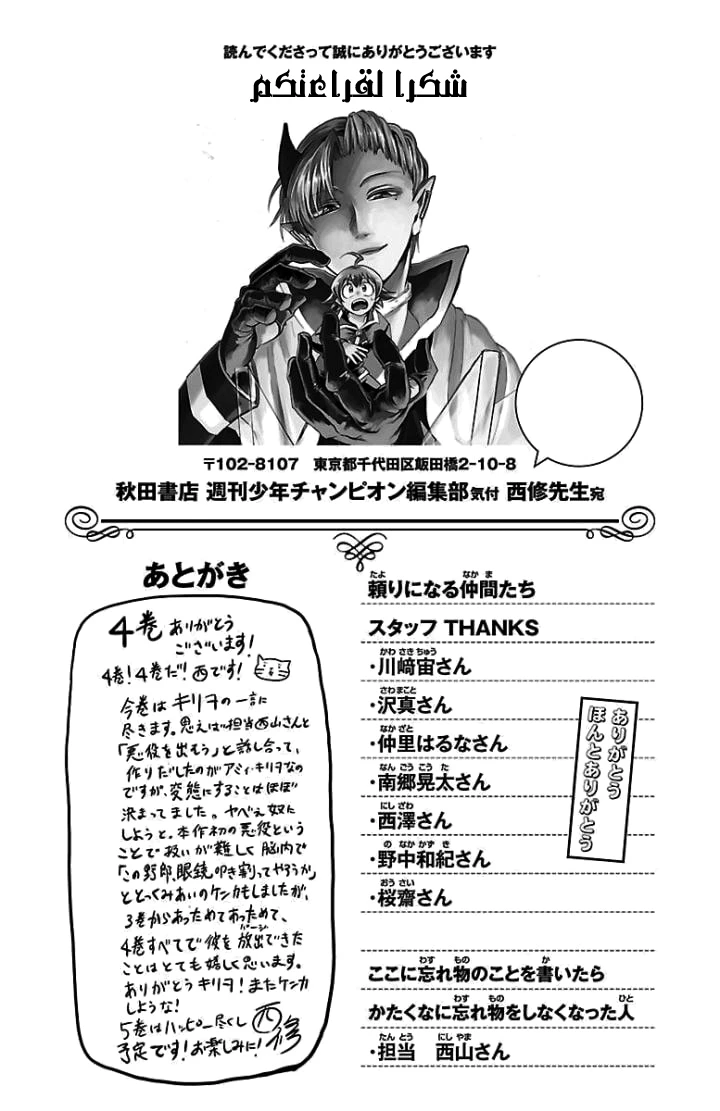 読んでくださって誠にありがとうございます
شكرا لقراءتكم
〒102-8107　東京都千代田区飯田橋2-10-8
秋田書店 週刊少年チャンピオン編集部気付 西修先生宛
あとがき
4巻 ありがとう
ございます!
4巻!4巻だ!西です!
今巻はキリヲの一言に
尽きます。思えば担当西山さんと
「悪役を出もう」と話し合って、
作りだしたのがアミィ・キリヲなの
ですが、変態にすることはほぼ
決まってました。ヤベぇ奴に
しようと。本作初の悪役という
ことで扱いが難しく脳内で
「この野郎、眼鏡叩き割ってやろうか」
ととっくみあいのケンカもしましたが、
3巻からあっためてあっためて、
4巻すべてで彼を放出できた
パージ
ことはとても嬉しく思います。
ありがとうキリヲ!またケンカ
しような!
5巻はハッピー尽くし
予定です!お楽しみに!
西修
たよ　なかま
頼りになる仲間たち
スタッフ THANKS
かわさきちゅう
・川﨑宙さん
さわまこと
・沢真さん
なかざと
・仲里はるなさん
なんごうこうた
・南郷晃太さん
にしざわ
・西澤さん
のなかかずき
・野中和紀さん
おうさい
・桜齋さん
ありがとう
ほんとありがとう
わす　もの　か
ここに忘れ物のことを書いたら
わす　もの　ひと
かたくなに忘れ物をしなくなった人
たんとう　にしやま
・担当　西山さん